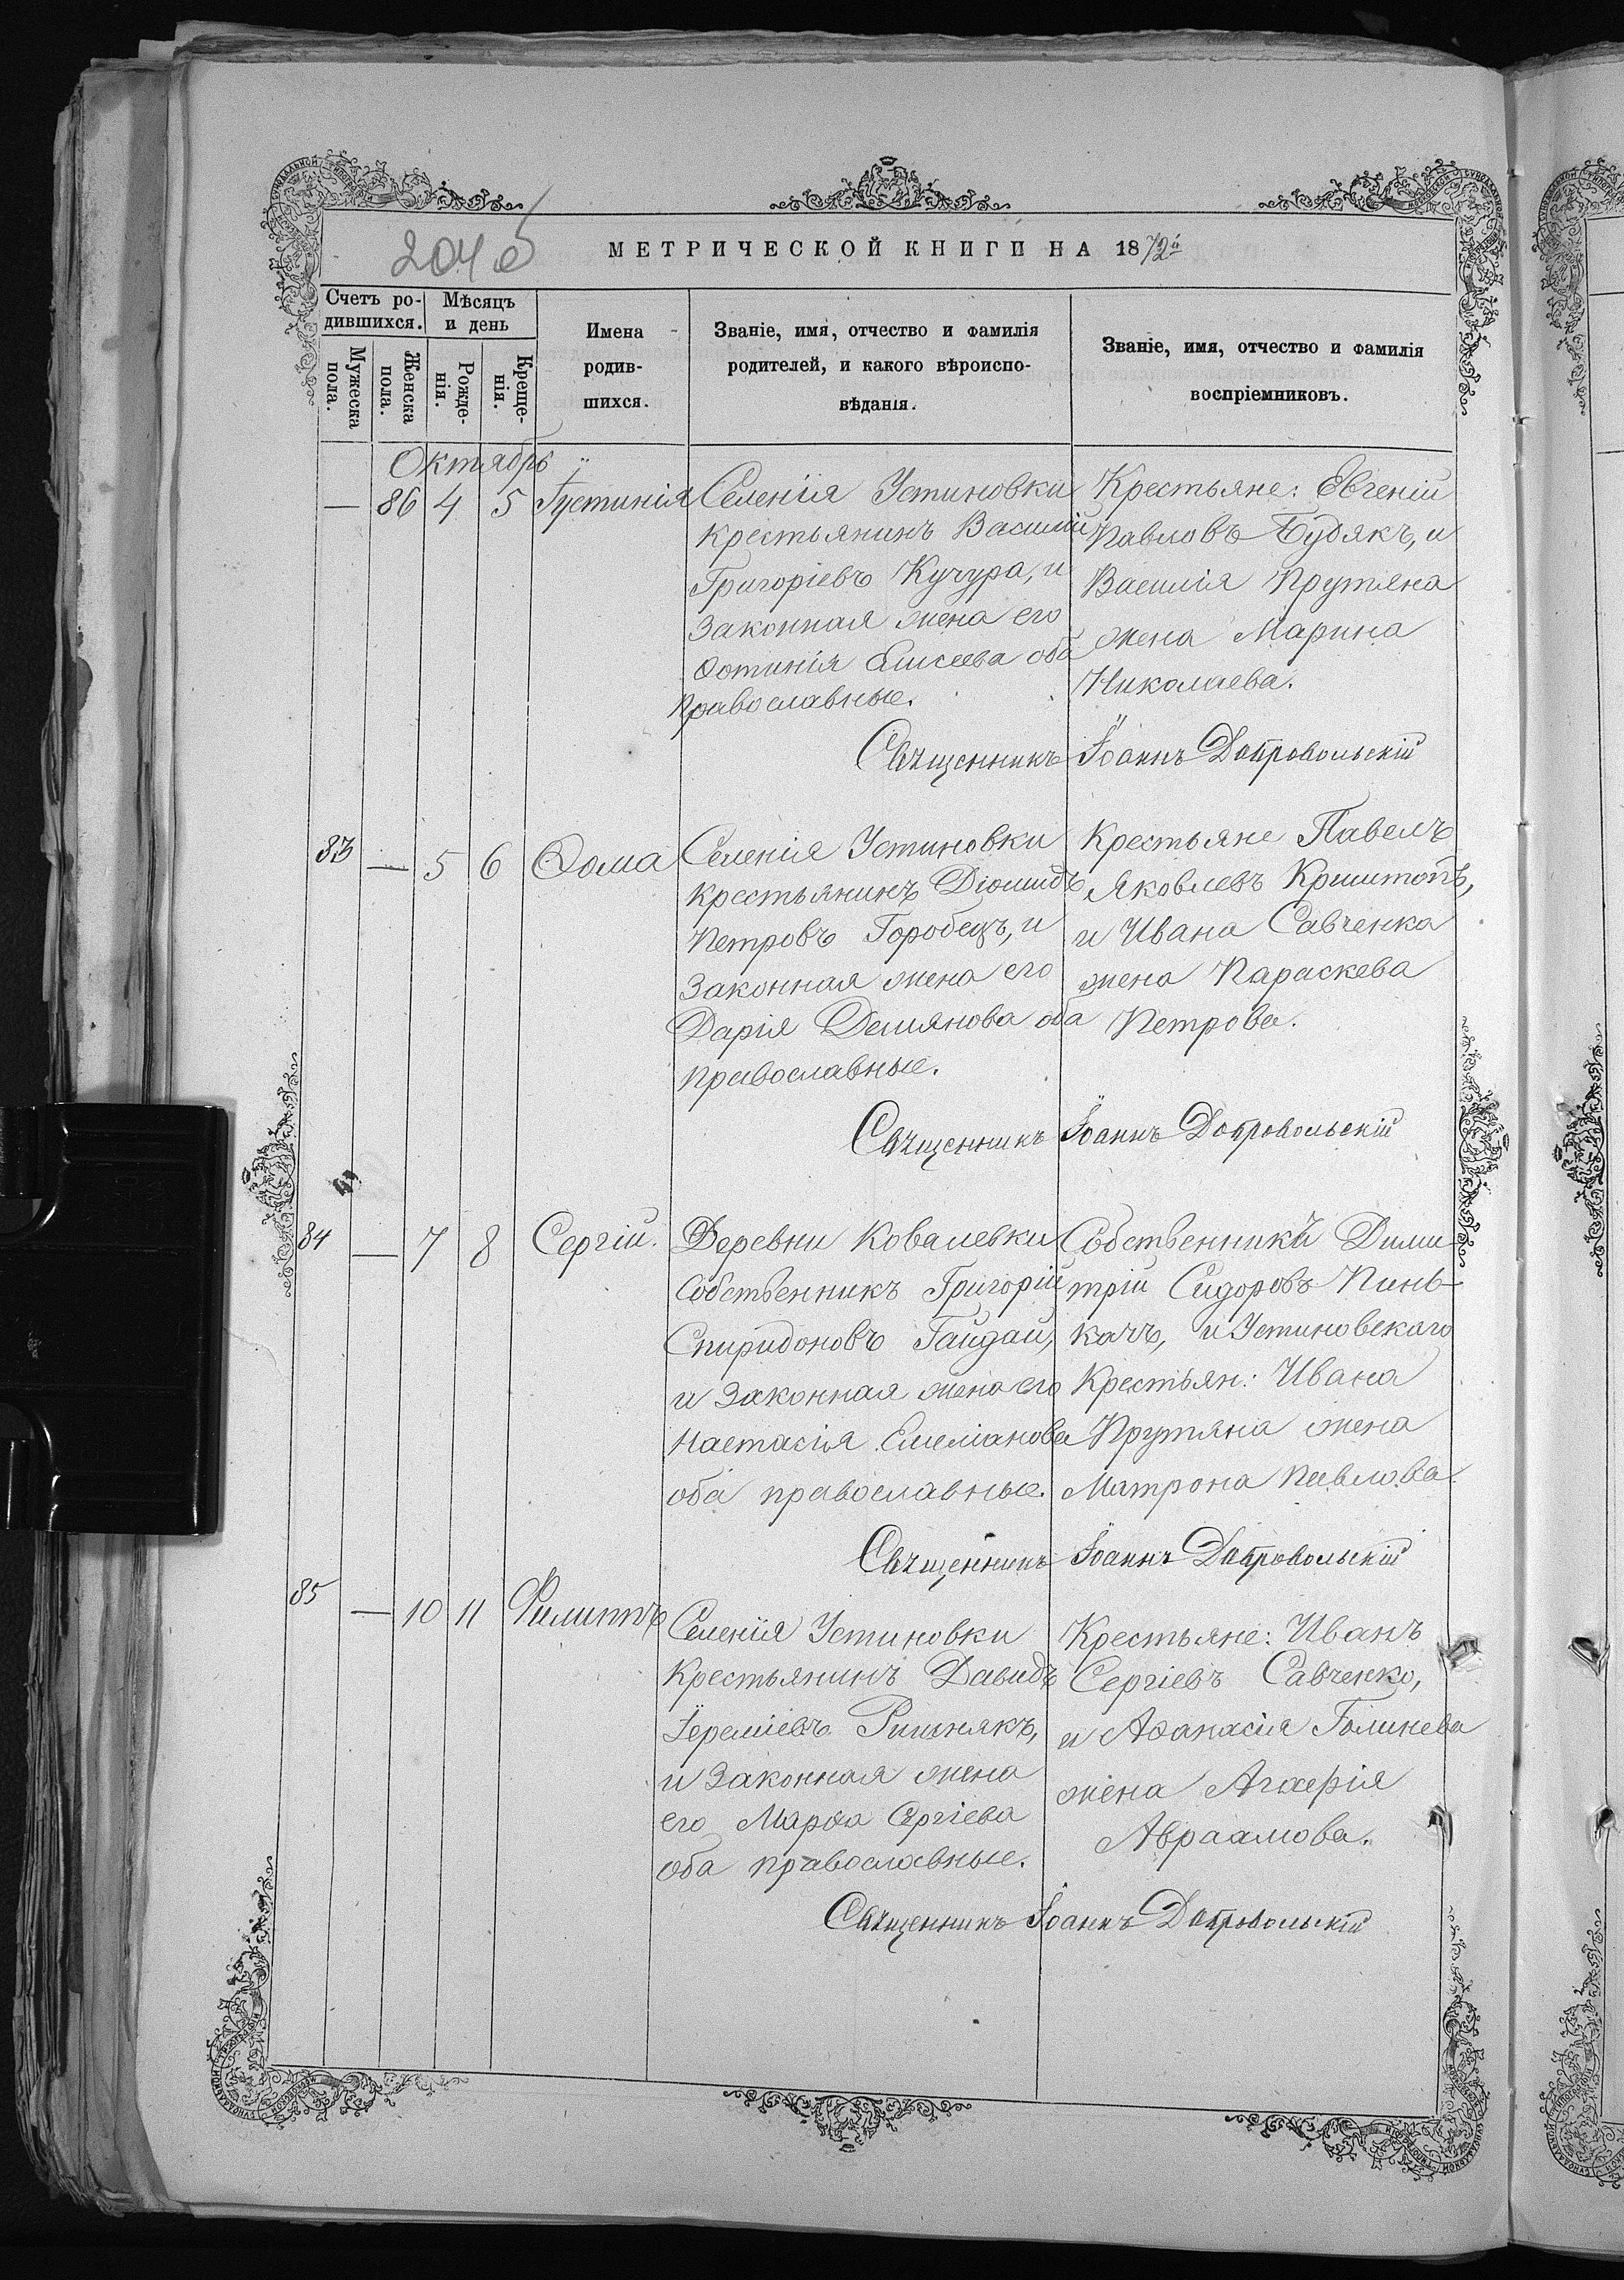 204 б
МЕТРИЧЕСКОЙ КНИГИ НА 1872й
Счетъ ро-
дившихся.
Мѣсяцъ
и день
Мужеска
пола.
Женска
пола.
Рожде-
нія.
Креще-
нія.
Имена
родив-
шихся.
Званіе, имя, отчество и фамилія
родителей, и какого вѣроиспо-
вѣданія.
Званіе, имя, отчество и фамилія
воспріемниковъ.
Октябрь
— 86 4 5 Іустинія
Селенія Устиновки
крестьянинъ Василій
Григоріевъ Кучура, и
законная жена его
Фотинія Елисеева оба
православные.
Крестьяне: Евгеній
Павловъ Будякъ, и
Василія Прутяна
жена Марина
Николаева.
Священникъ Іоаннъ Добровольскій
83 — 5 6 Ѳома
Селенія Устиновки
крестьянинъ Діомидъ
Петровъ Горобецъ, и
законная жена его
Дарія Демянова оба
православные.
Крестьяне Павелъ
Яковлевъ Криштопъ,
и Ивана Савченка
жена Параскева
Петрова.
Священникъ Іоаннъ Добровольскій
84 — 7 8 Сергій.
Деревни Ковалевки
Собственникъ Григорій
Спиридоновъ Гайдай,
и законная жена его
Настасія Емеліанова
оба православные.
Собственникъ Дими
трій Сидоровъ Пинь-
качъ, и Устиновскаго
Крестьян: Ивана
Прутяна жена
Матрона Павлова.
Священникъ Іоаннъ Добровольскій
85 — 10 11 Филиппъ
Селенія Устиновки
Крестьянинъ Давидъ
Іереміевъ Ришнякъ,
и законная жена
его Марѳа Сергіева
оба православные.
Крестьяне: Иванъ
Сергіевъ Савченко,
и Аѳанасія Голинева
жена Агафія
Авраамова.
Священникъ Іоаннъ Добровольскій